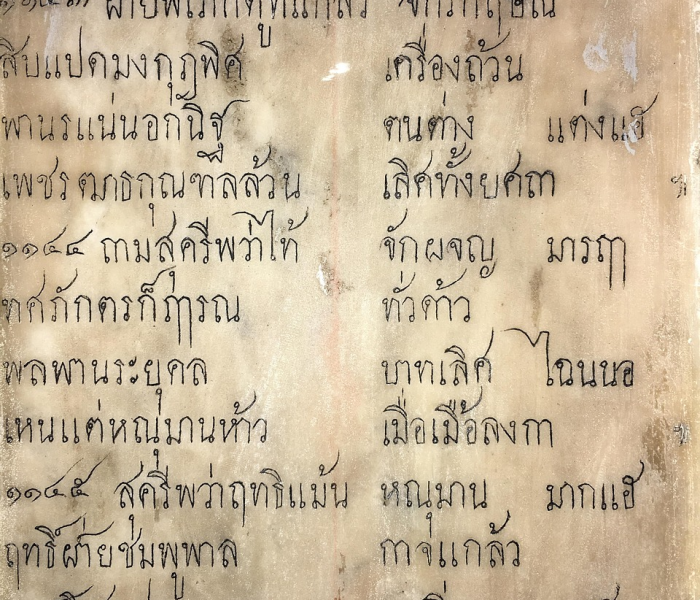 สิบแปดมงกุฎพิศ เครื่องถ้วน
พานรแน่นอกนิฐ ตนต่าง แต่งแฮ
เพชร กุณฑลล้วน เลิศทั้งยศถา
๑๑๔๔ ถามสุครีพว่าไท้ จักผจญ มารฤๅ
ทศภักตรก็ฤๅรณ ทั่วด้าว
พลพานระยุคล บาทเลิศ ไฉนนอ
เหนแต่หณุมานห้าว เมื่อเมื้อลงกา
๑๑๔๕ สุครีพว่าฤทธิแม้น หณุมาน มากแฮ
ฤทธิ์ฝ่ายชมพูพาล กาจแกล้ว